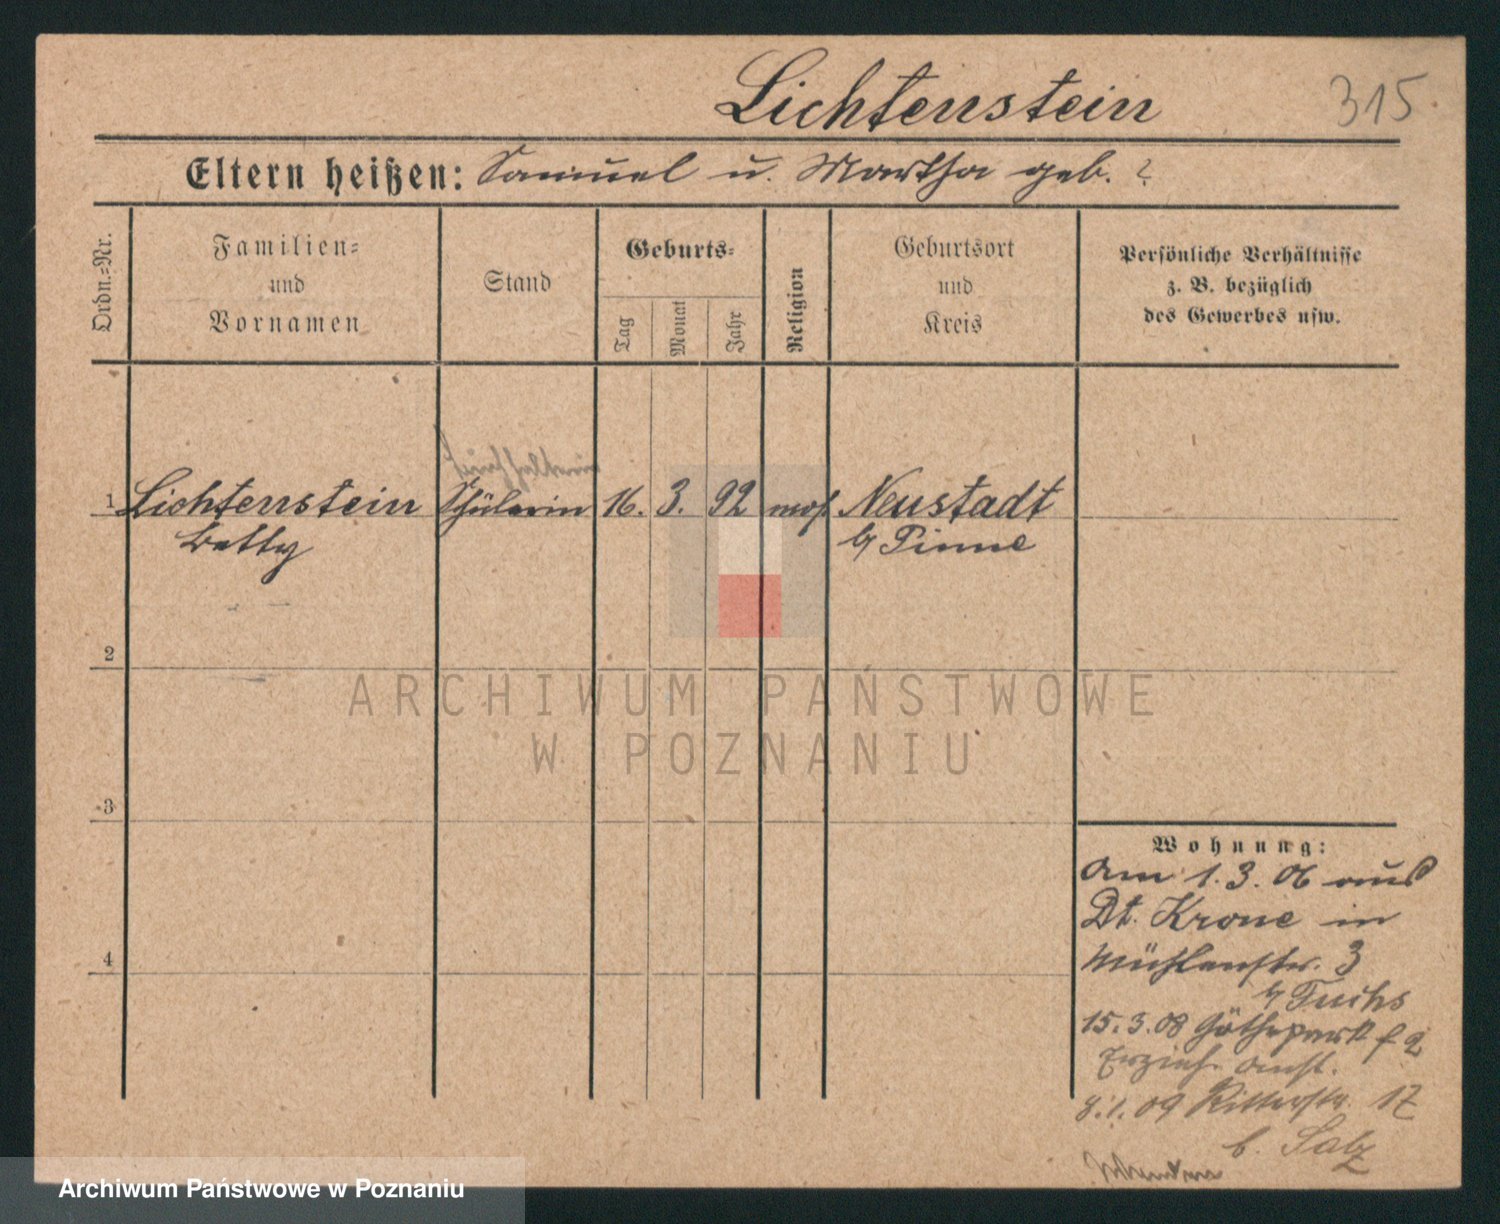 Lichtenstein
315.
Eltern heißen: Samuel u. Martha geb. ?
Ordn.=Nr.
Familien=
und
Vornamen
Stand
Geburts=
Tag
Monat
Jahr
Religion
Geburtsort
und
Kreis
Persönliche Verhältnisse
z. B. bezüglich
des Gewerbes usw.
Buchhalterin
1 Lichtenstein Schülerin 16. 3. 92 mos. Neustadt
Betty b/ Pinne
2
ARCHIWUM PAŃSTWOWE
W POZNANIU
3
Wohnung:
Am 1. 3. 06 aus
Dt. Krone in
Mühlenstr. 3
b/ Fuchs
15. 3. 08 Göthepark
Erzieh. Anst.
8. 1. 09 Ritterstr. 17
b. Salz
4
Archiwum Państwowe w Poznaniu